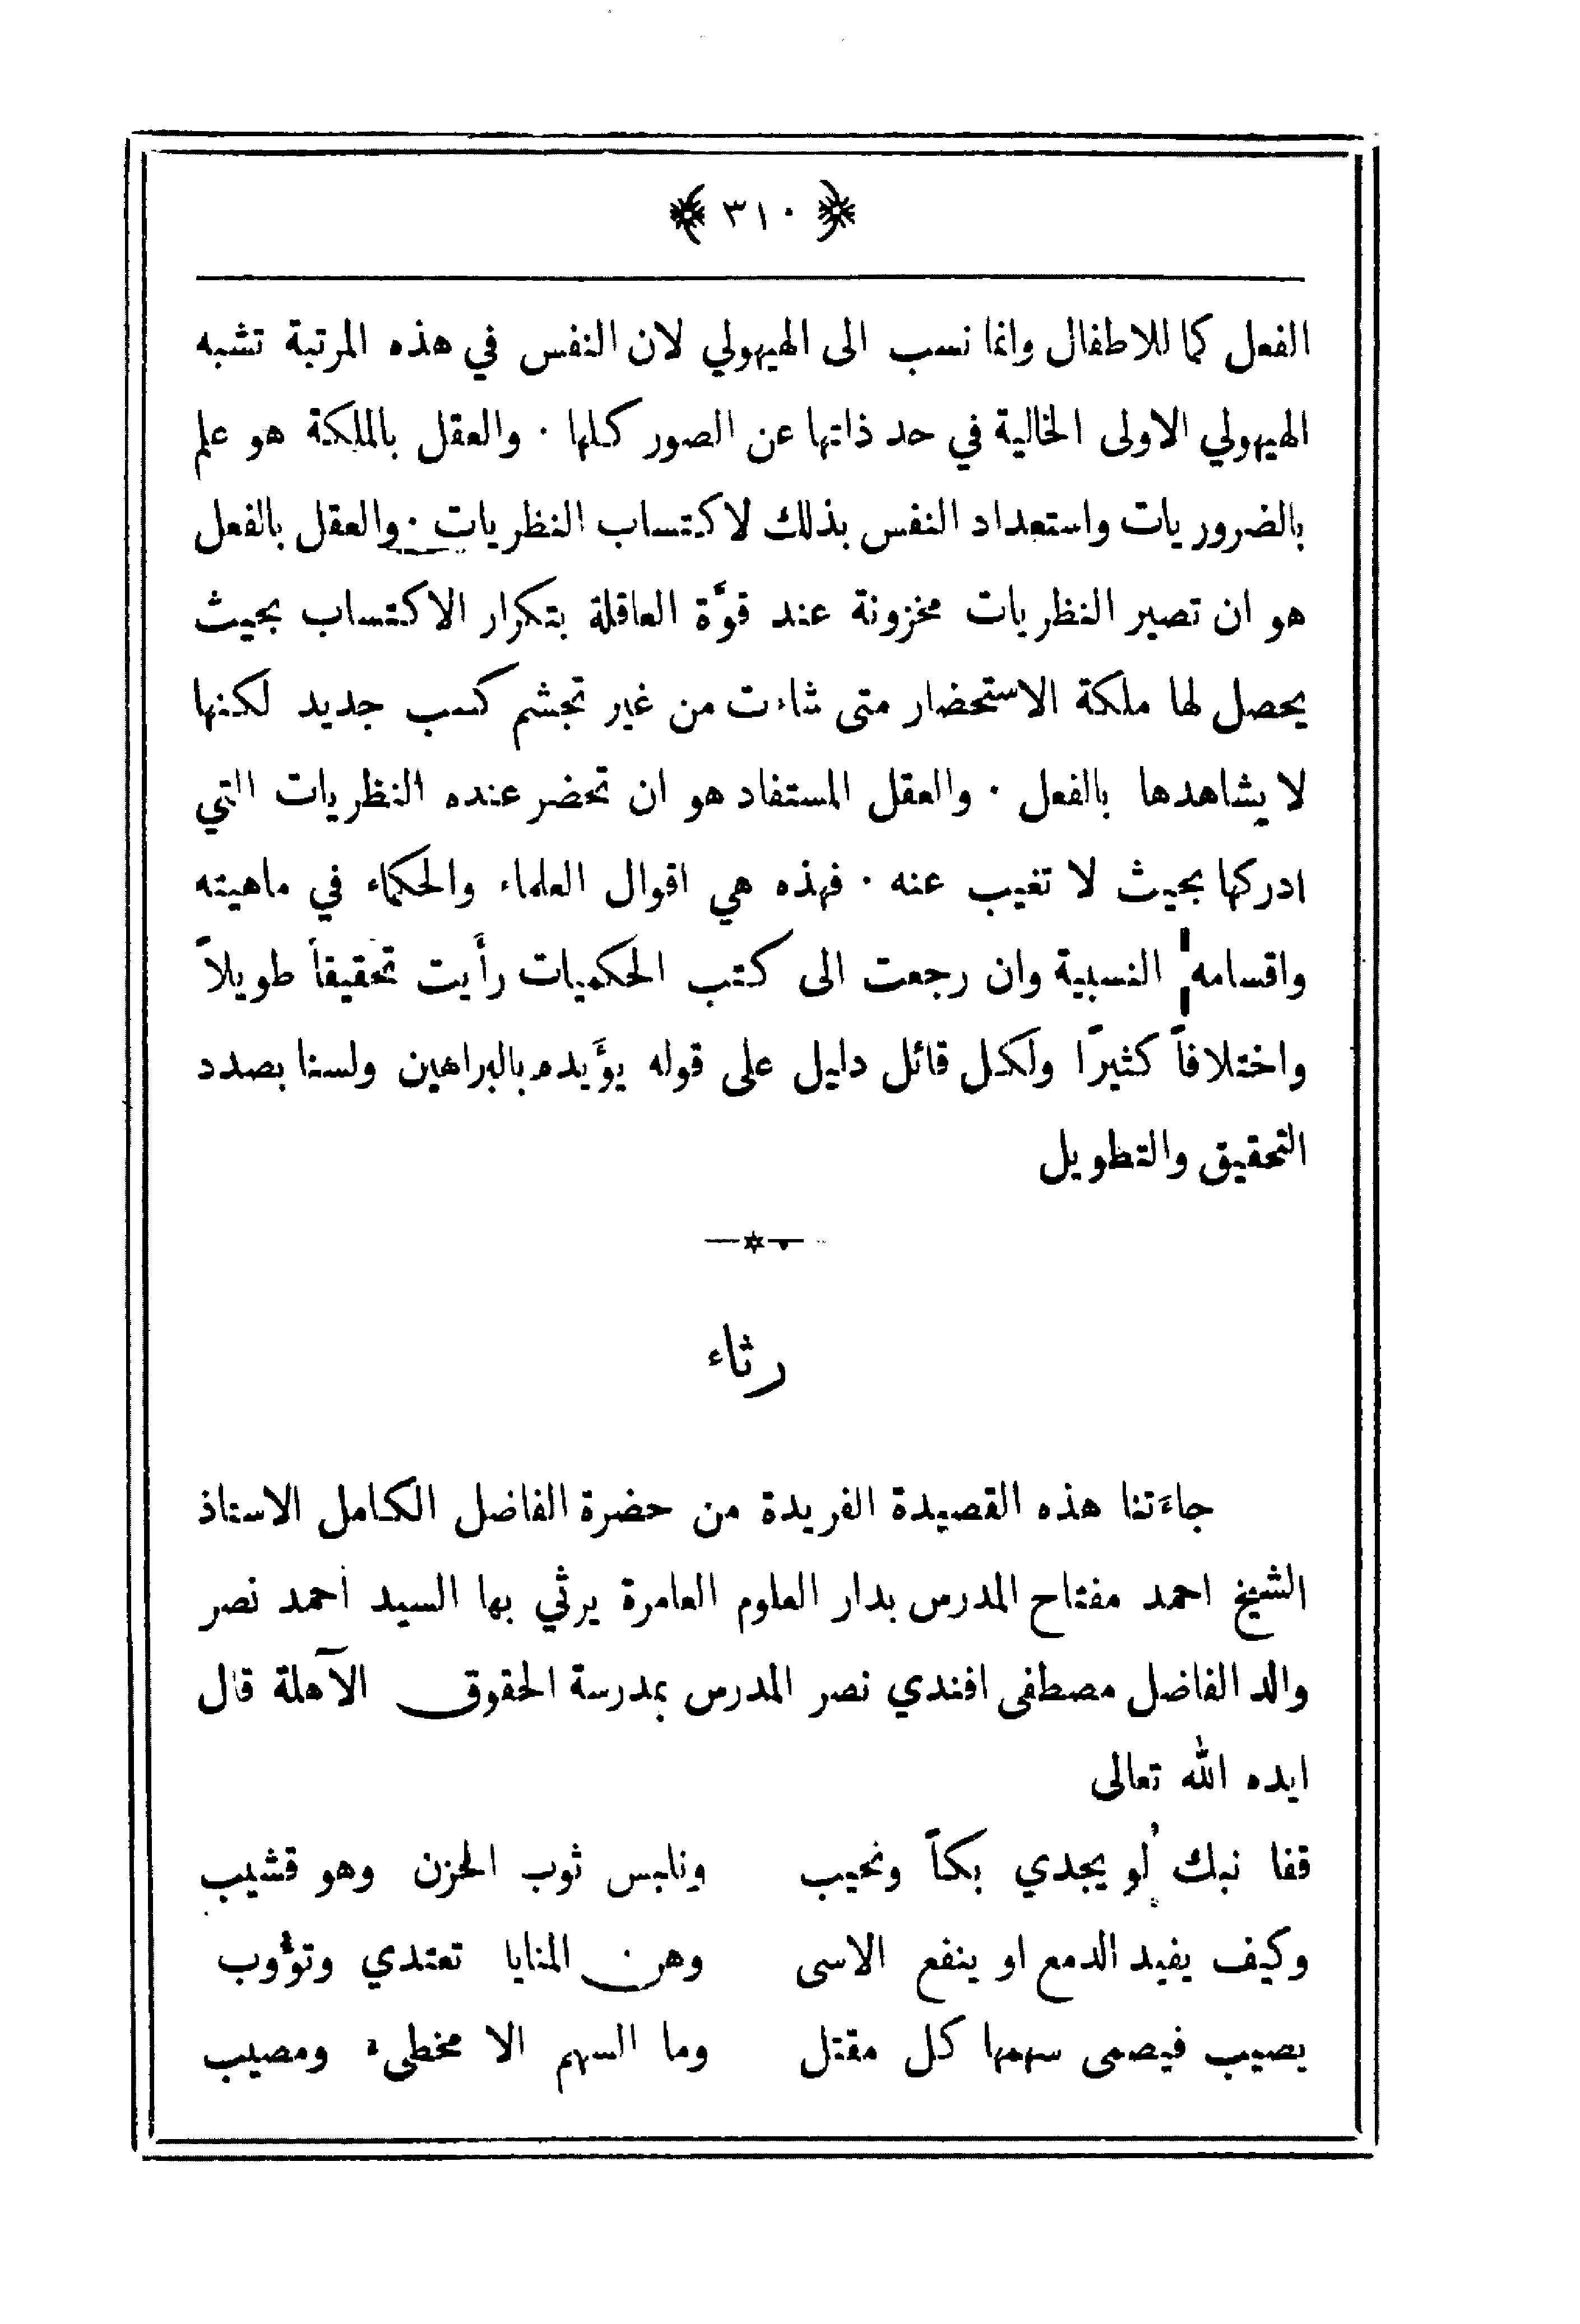 ﴿ ٣١٠ ﴾
الفعل كما للاطفال وانما نسب الى الهيولي لان النفس في هذه المرتبة تشبه
الهيولي الاولى الخالية في حد ذاتها عن الصور كلها · والعقل بالملكة هو علم
بالضروريات واستعداد النفس بذلك لاكتساب النظريات · والعقل بالفعل
هو ان تصير النظريات مخزونة عند قوَّة العاقلة بتكرار الاكتساب بحيث
يحصل لها ملكة الاستحضار متى شاءت من غير تجشم كسب جديد لكنها
لا يشاهدها بالفعل · والعقل المستفاد هو ان تحضر عنده النظريات التي
ادركها بحيث لا تغيب عنه · فهذه هي اقوال العلماء والحكماء في ماهيته
واقسامه النسبية وان رجعت الى كتب الحكميات رأيت تحقيقاً طويلاً
واختلافاً كثيرًا ولكل قائل دليل على قوله يؤَيده بالبراهين ولسنا بصدد
التحقيق والتطويل
رثاء
جاءَتنا هذه القصيدة الفريدة من حضرة الفاضل الكامل الاستاذ
الشيخ احمد مفتاح المدرس بدار العلوم العامرة يرثي بها السيد أحمد نصر
والد الفاضل مصطفى افندي نصر المدرس بمدرسة الحقوق الآهلة قال
ايده الله تعالى
قفا نبك لو يجدي بكاً ونحيب ونلبس ثوب الحزن وهو قشيب
وكيف يفيد الدمع او ينفع الاسى وهن المنايا تعتدي وتؤوب
يصيب فيصمى سهمها كل مقتل وما السهم الا مخطىء ومصيب